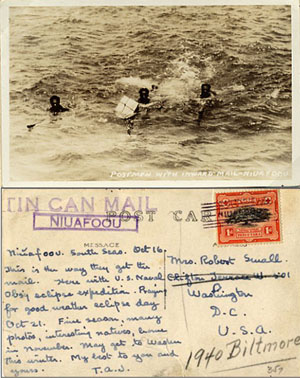 POSTMEN WITH INWARD MAIL - NIUAFOOU
TIN CAN MAIL
NIUAFOOU
POST CARD
MESSAGE
Niuafoou. South Seas. Oct 16.
This is the way they get the
mail. Here with U.S. Naval
Obs'y eclipse expedition. Pray
for good weather eclipse day
Oct 21. Fine season, many
photos, interesting natives, home
in November. May get to Wash'n
this winter. My best to you and
yours.
T.A.J.
Mrs. Robert Small
Clifton Terrace
Washington
D.C.
U.S.A.
1940 Biltmore
1d
1d